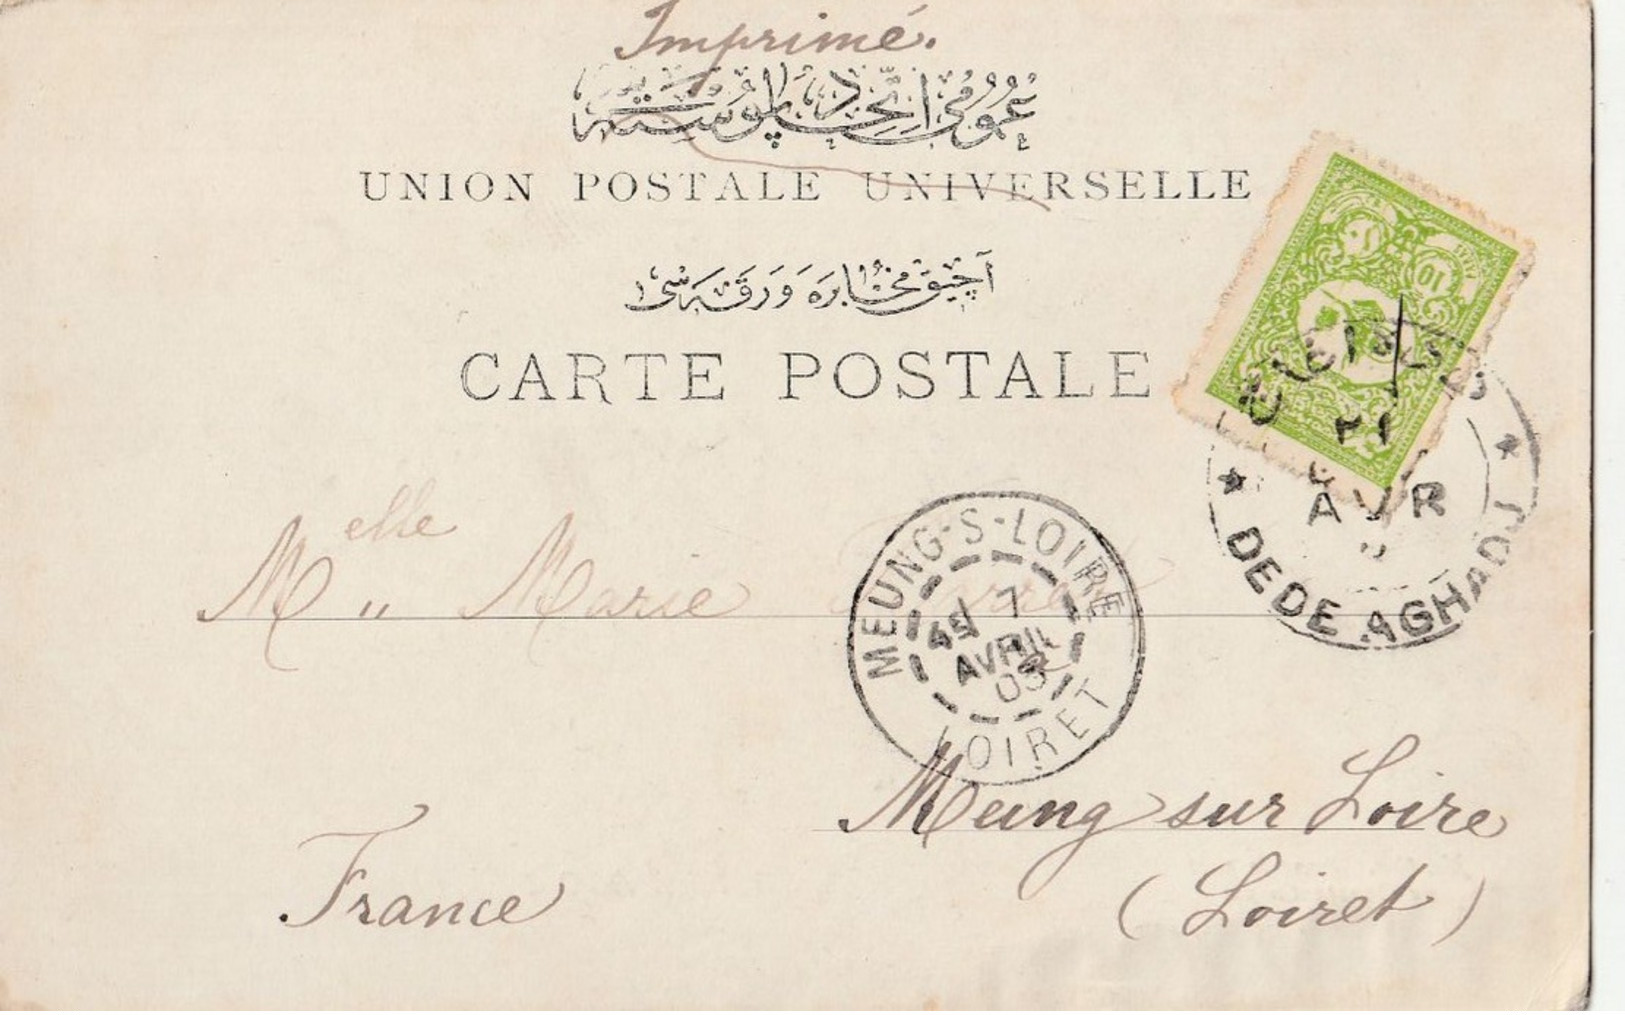 Imprimé.
عمومی اتحاد پوسته
UNION POSTALE UNIVERSELLE
آچیق مخابره ورقه سی
CARTE POSTALE
10
٢١
AVR
DEDE AGHADJ
Melle Marie
MEUNG-S-LOIRE
7
AVRIL
03
LOIRET
Meung sur Loire
France
(Loiret)